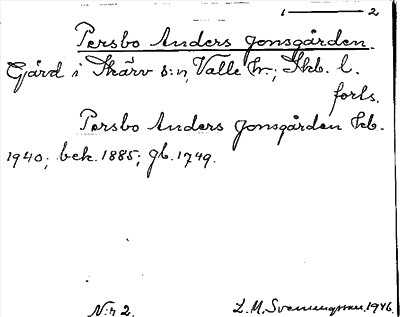 1 — 2
Persbo Anders Jonsgården.
Gård i Skärv s:n, Valle hr; Skb. l.
forts.
Persbo Anders Jonsgården kb.
1940; bek. 1885; gb. 1749.
N:r 2. L. M. Svenungsson. 1946.